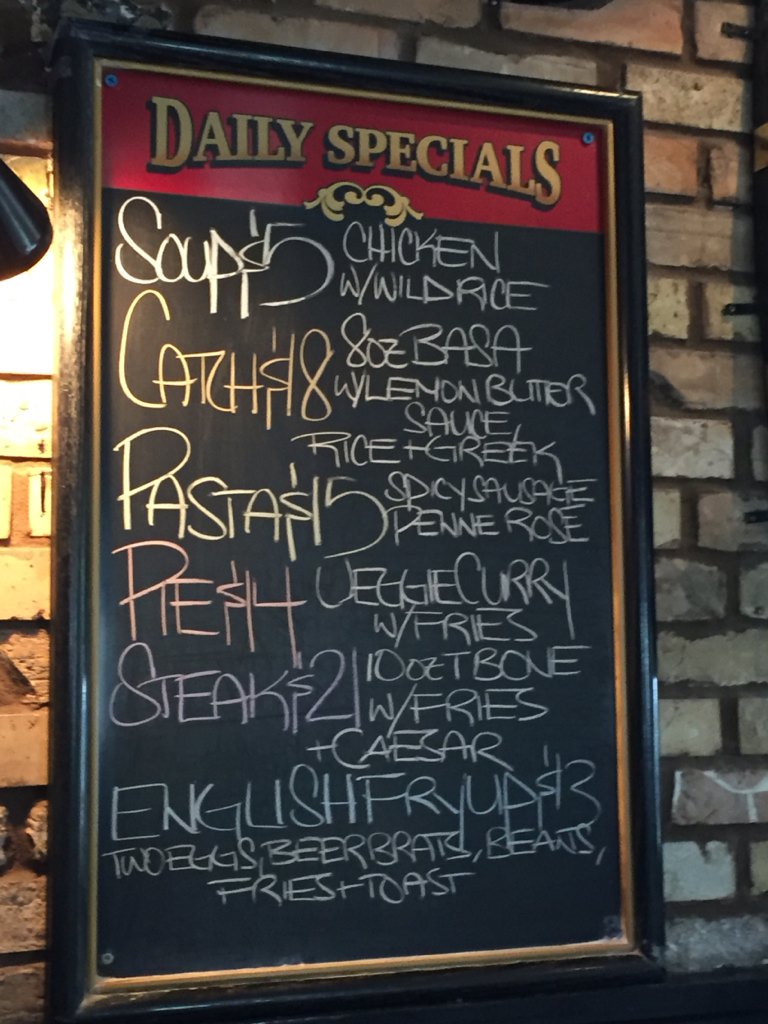 DAILY SPECIALS
SOUP $5 CHICKEN
W/WILD RICE
CATCH $18 8OZ BASA
W/LEMON BUTTER
SAUCE,
RICE + GREEK
PASTA $15 SPICY SAUSAGE
PENNE ROSE
PIE $14 VEGGIE CURRY
W/FRIES
STEAK $21 10OZ T BONE
W/FRIES
+ CAESAR
ENGLISH FRYUP $13
TWO EGGS, BEER BRATS, BEANS,
FRIES + TOAST